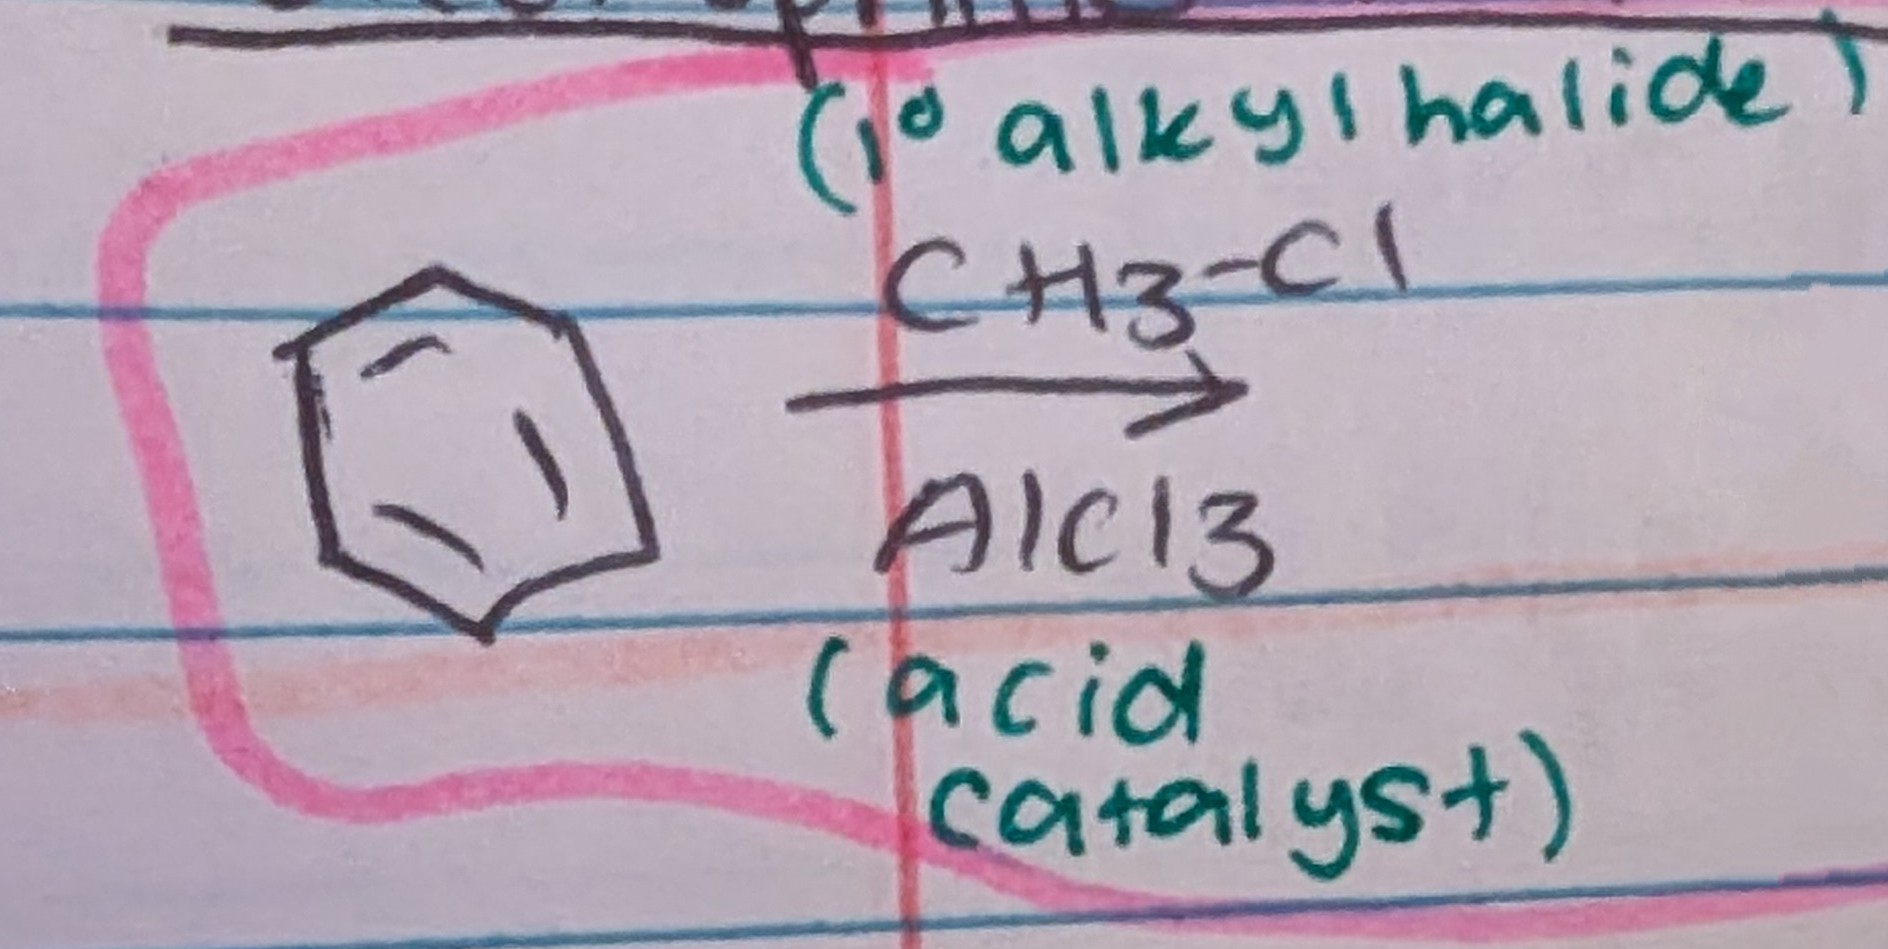 (1° alkyl halide)
CH3-Cl
AlCl3
(acid
catalyst)